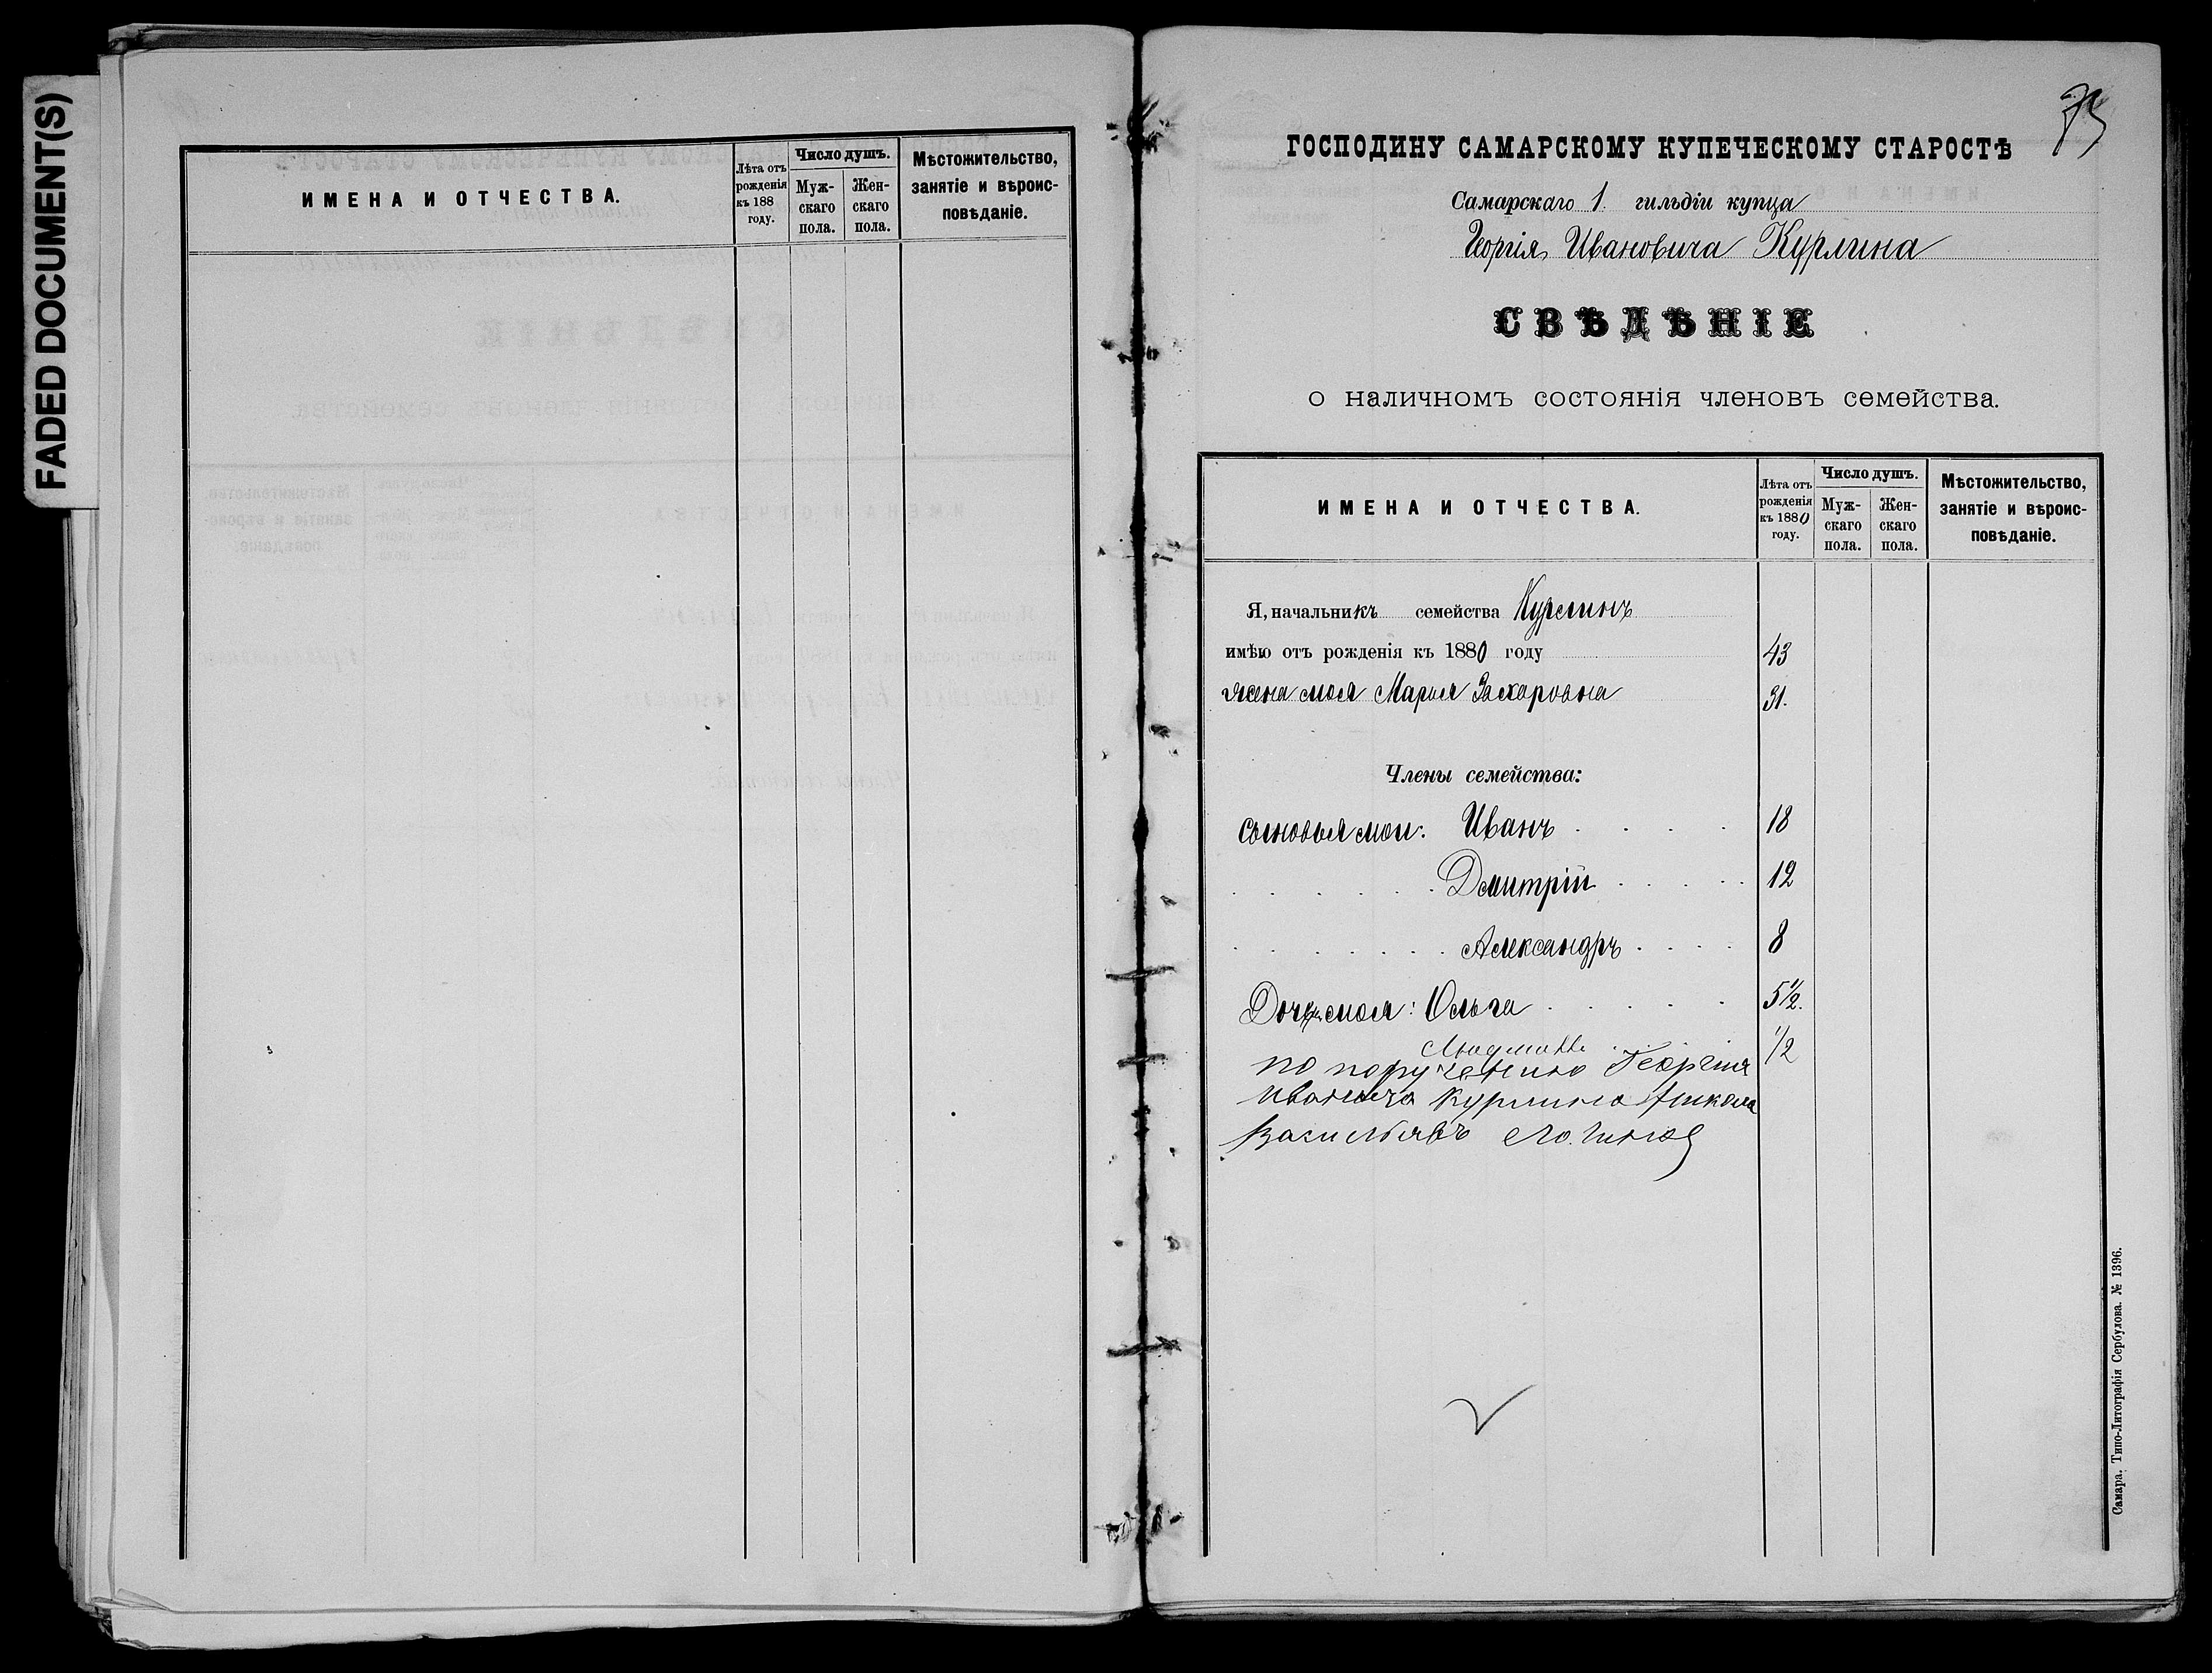 FADED DOCUMENT(S)
ИМЕНА И ОТЧЕСТВА.
Лѣта отъ рожденія къ 188 году.
Число душъ.
Муж-скаго пола.
Жен-скаго пола.
Мѣстожительство, занятіе и вѣроис-повѣданіе.
ГОСПОДИНУ САМАРСКОМУ КУПЕЧЕСКОМУ СТАРОСТѢ
Самарскаго 1. гильдіи купца
Георгія Ивановича Курлина
СВѢДѢНІЕ
о наличномъ состоянія членовъ семейства.
ИМЕНА И ОТЧЕСТВА.
Лѣта отъ рожденія къ 1880 году.
Число душъ.
Муж-скаго пола.
Жен-скаго пола.
Мѣстожительство, занятіе и вѣроис-повѣданіе.
Я, начальникъ семейства Курлинъ
имѣю отъ рожденія къ 1880 году 43
жена моя Марья Захаровна 31.
Члены семейства:
сыновья мои: Иванъ 18
Дмитрій 12
Александръ 8
Дочь моя: Ольга 5½.
Людмила ½
по порученію Георгия
Иванича Курлина
Васильевъ
Самара. Типо-Литографія Сербулова. № 1396.